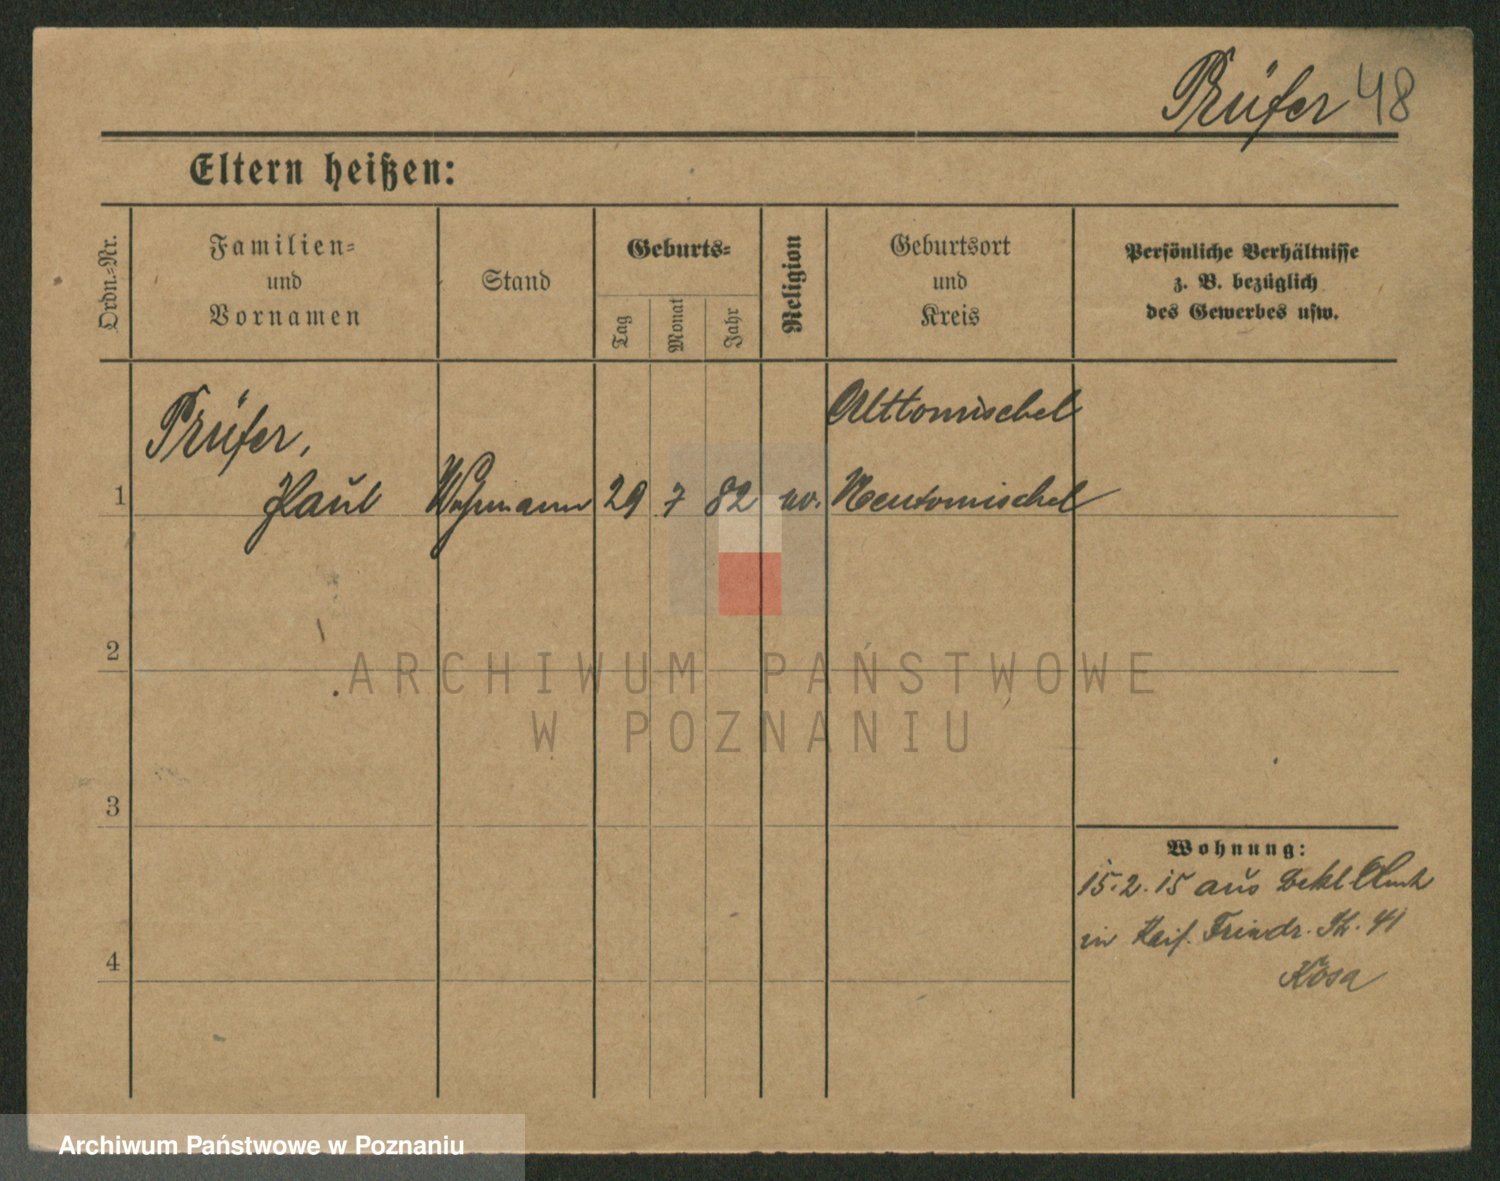 Prüfer 48
Eltern heißen:
Ordn.=Nr.
Familien=
und
Vornamen
Stand
Geburts=
Tag
Monat
Jahr
Religion
Geburtsort
und
Kreis
Persönliche Verhältnisse
z. B. bezüglich
des Gewerbes usw.
Prüfer,
Alttomischel
1 Paul Wehrmann 29 7 82 ev. Neutomischel
2
ARCHIWUM PAŃSTWOWE
W POZNANIU
3
Wohnung:
15.2.15 aus
in Kais. Friedr. St. 41
4
Kosa
Archiwum Państwowe w Poznaniu